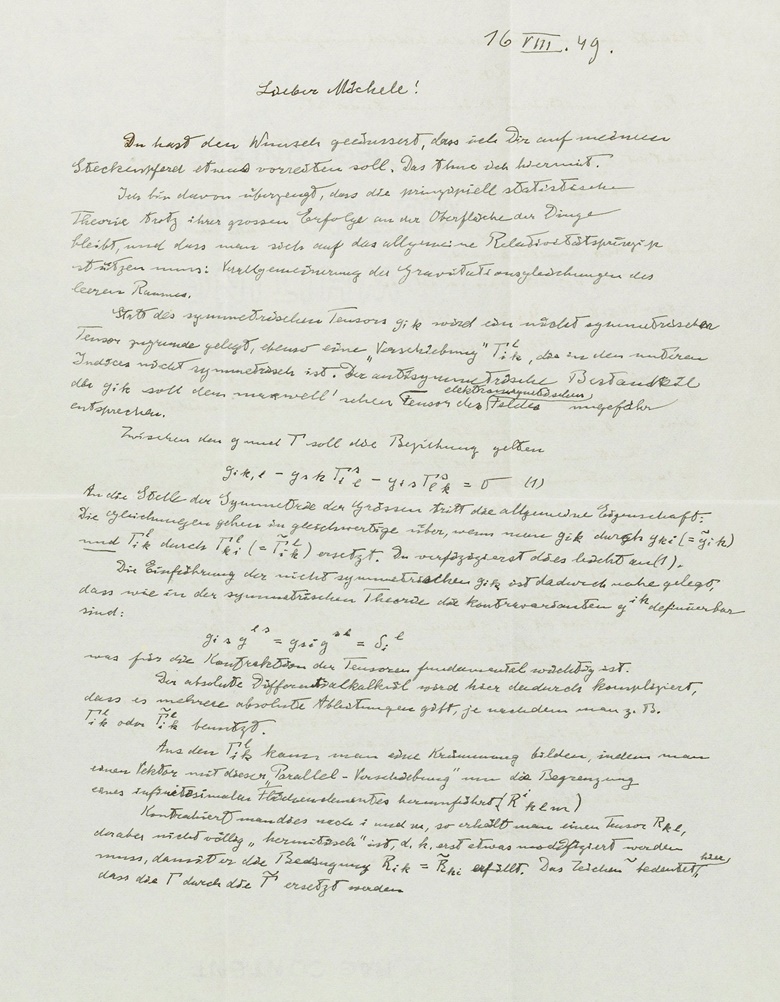 16 VIII. 49.
Lieber Michele!
Du hast den Wunsch geäussert, dass ich Dir auf meinem
Steckenpferd etwas vorreiten soll. Das thue ich hiermit.
Ich bin davon überzeugt, dass die prinzipiell statistische
Theorie trotz ihrer grossen Erfolge an der Oberfläche der Dinge
bleibt, und dass man sich auf das allgemeine Relativitätsprinzip
stützen muss: Verallgemeinerung der Gravitationsgleichungen des
leeren Raumes.
Statt des symmetrischen Tensors gik wird ein nicht symmetrischer
Tensor zugrunde gelegt, ebenso eine „Verschiebung" Γ_i^l_k, die in den unteren
Indices nicht symmetrisch ist. Der antisymmetrische Bestandteil
der gik soll dem maxwell'schen Tensor des elektromagnetischen Feldes ungefähr
entsprechen.
Zwischen den g und Γ soll die Beziehung gelten
g_ik,l − g_sk Γ_i^s_l − g_is Γ_l^s_k = 0 (1)
An die Stelle der Symmetrie der Grössen tritt die allgemeine Eigenschaft:
Die Gleichungen gehen in gleichwertige über, wenn man gik durch gki (= g̃ik)
und Γ_i^l_k durch Γ_k^l_i (= Γ̃_i^l_k) ersetzt. Du verifizierst dies leicht an (1).
Die Einführung der nicht symmetrischen gik ist dadurch nahe gelegt,
dass wie in der symmetrischen Theorie die kontravarianten g^ik definierbar
sind:
g_is g^ls = g_si g^sl = δ_i^l
was für die Kontraktion der Tensoren fundamental wichtig ist.
Der absolute Differentialkalkül wird hier dadurch kompliziert,
dass es mehrere absolute Ableitungen gibt, je nachdem man z. B.
Γ_i^l_k oder Γ̃_i^l_k benutzt.
Aus den Γ_i^l_k kann man eine Krümmung bilden, indem man
einen Vektor mit dieser „Parallel-Verschiebung" um die Begrenzung
eines infinitesimalen Flächenelementes herumführt (R^i_klm)
Kontrahiert man dies nach i und m, so erhält man einen Tensor R_kl,
der aber nicht völlig „hermitisch" ist, d. h. erst etwas modifiziert werden
muss, damit er die Bedingung R_ik = R̃_ki erfüllt. Das Zeichen ~ bedeutet hier,
dass die Γ durch die Γ̃ ersetzt werden